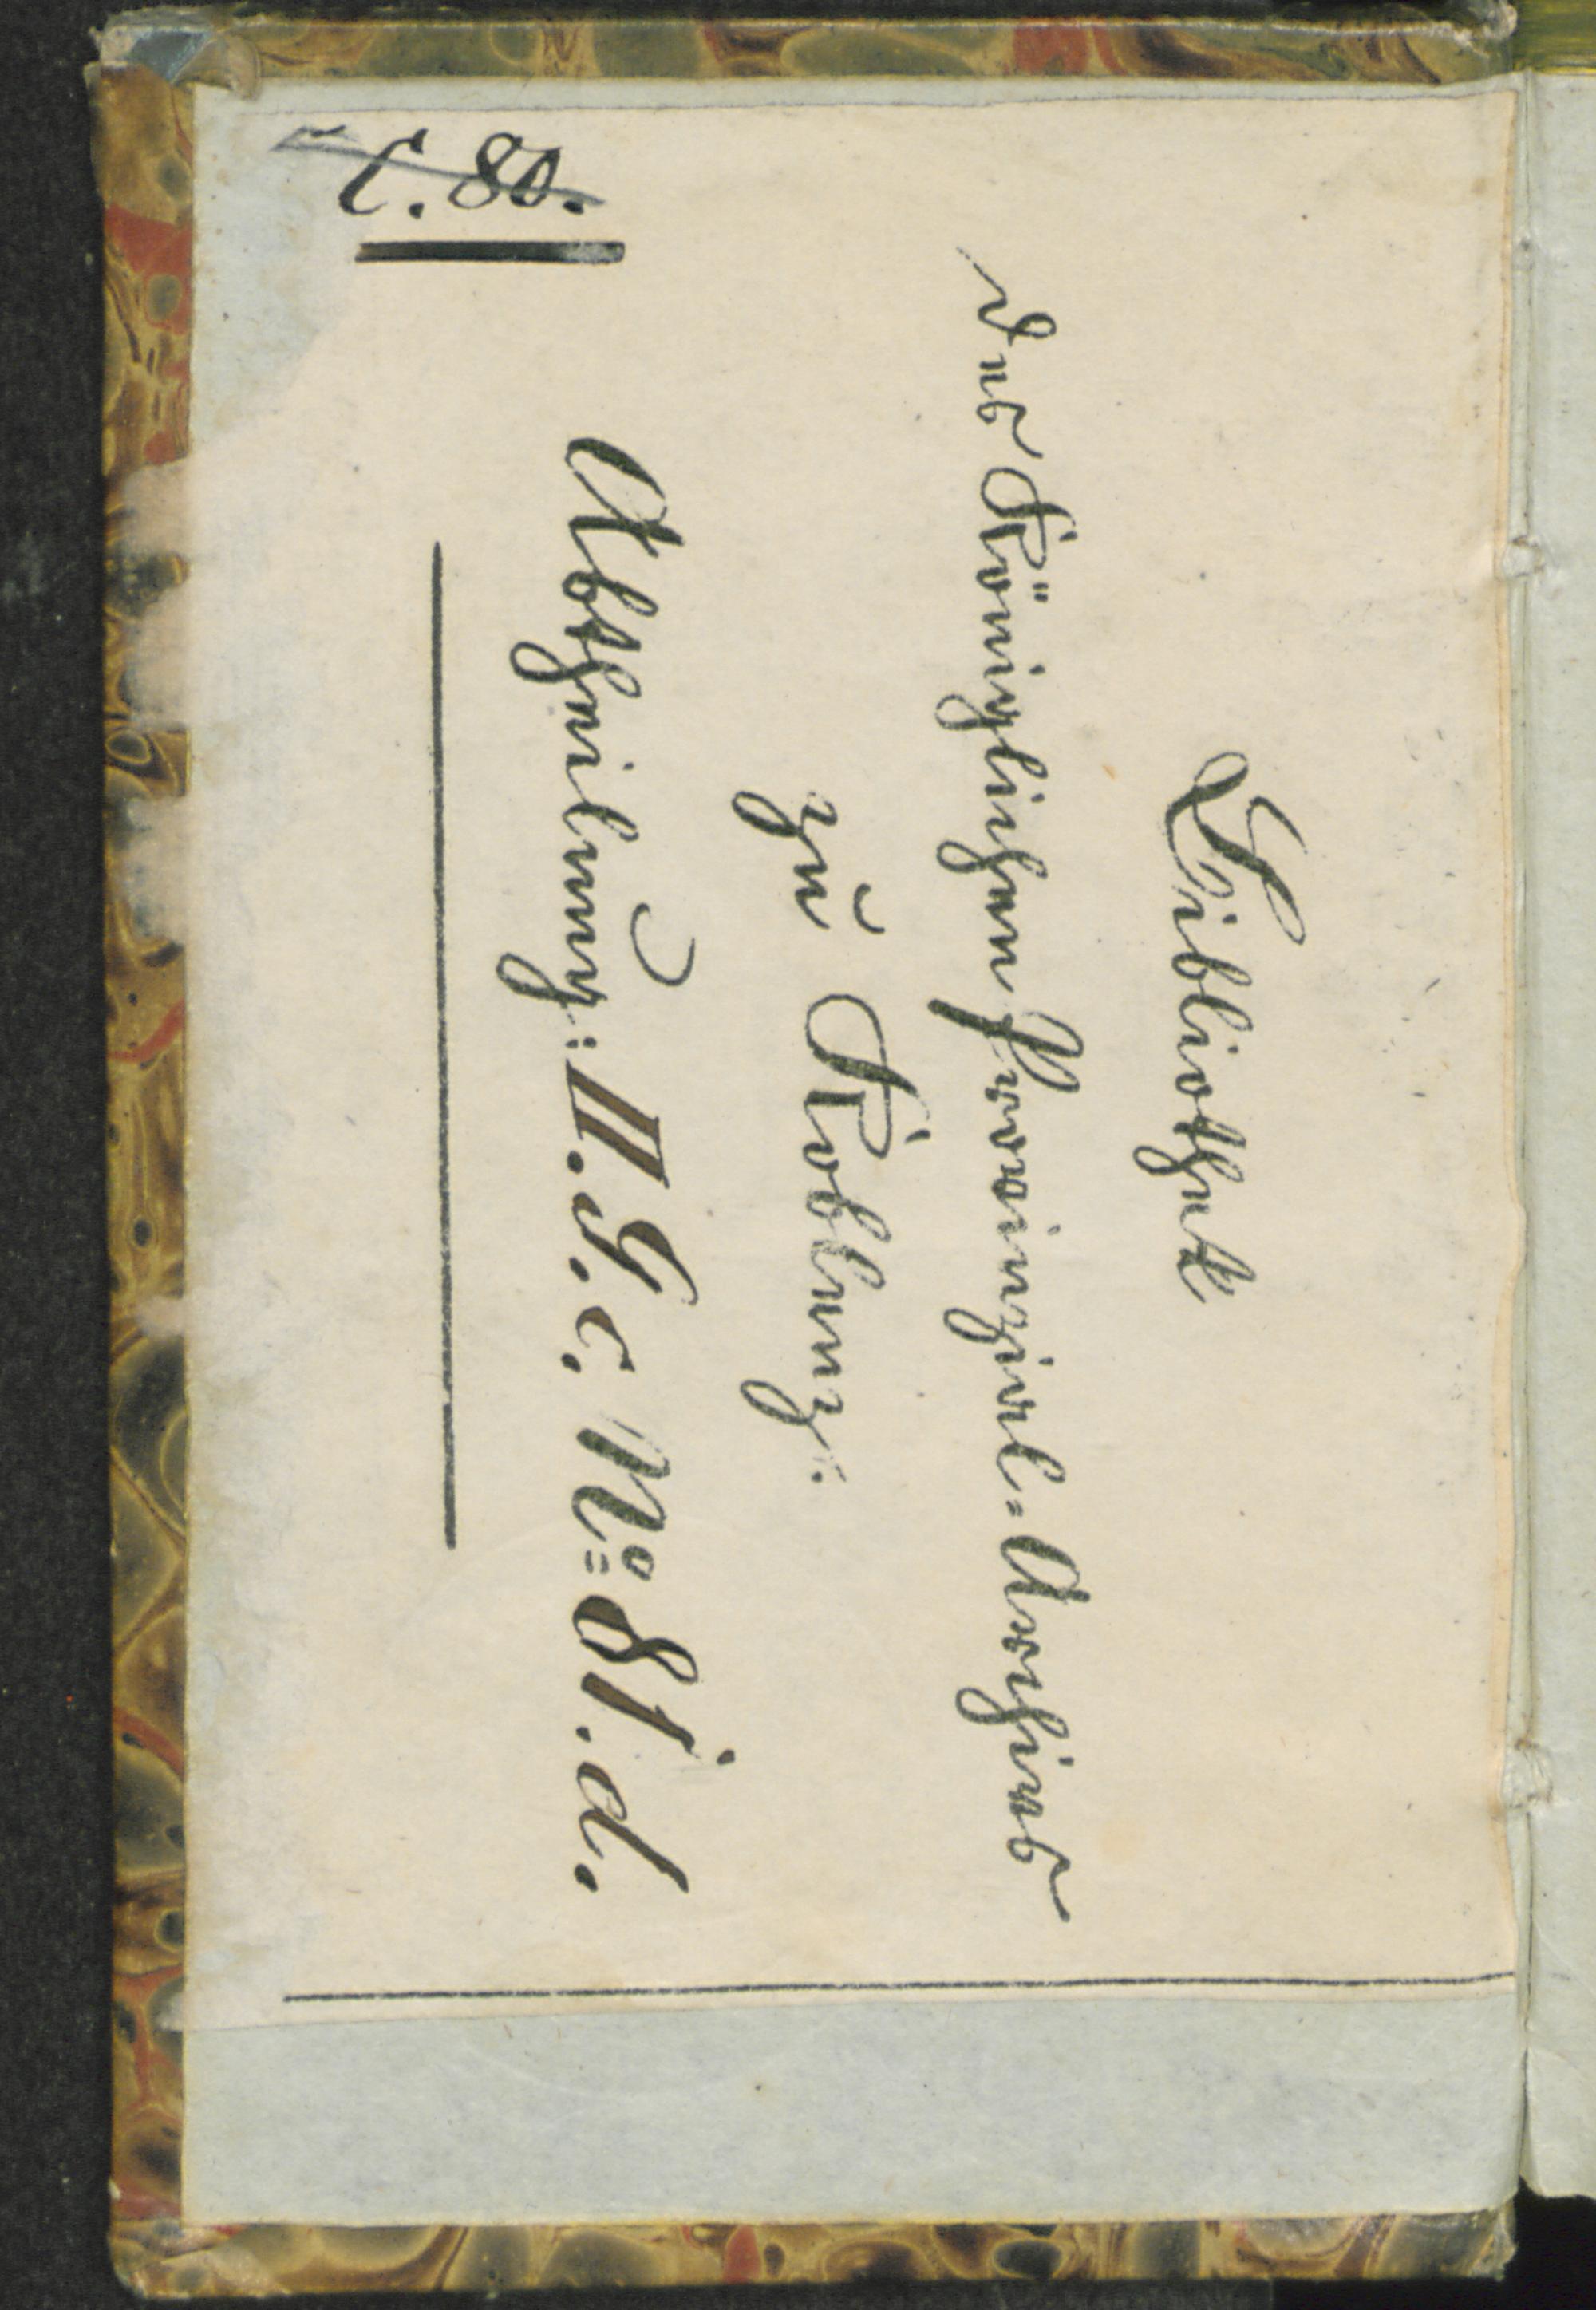 Bibliothek
des Königlichen Provinzial-Archives
zu Koblenz.
Abtheilung: II. G. c. No 81. d.
C. 80.